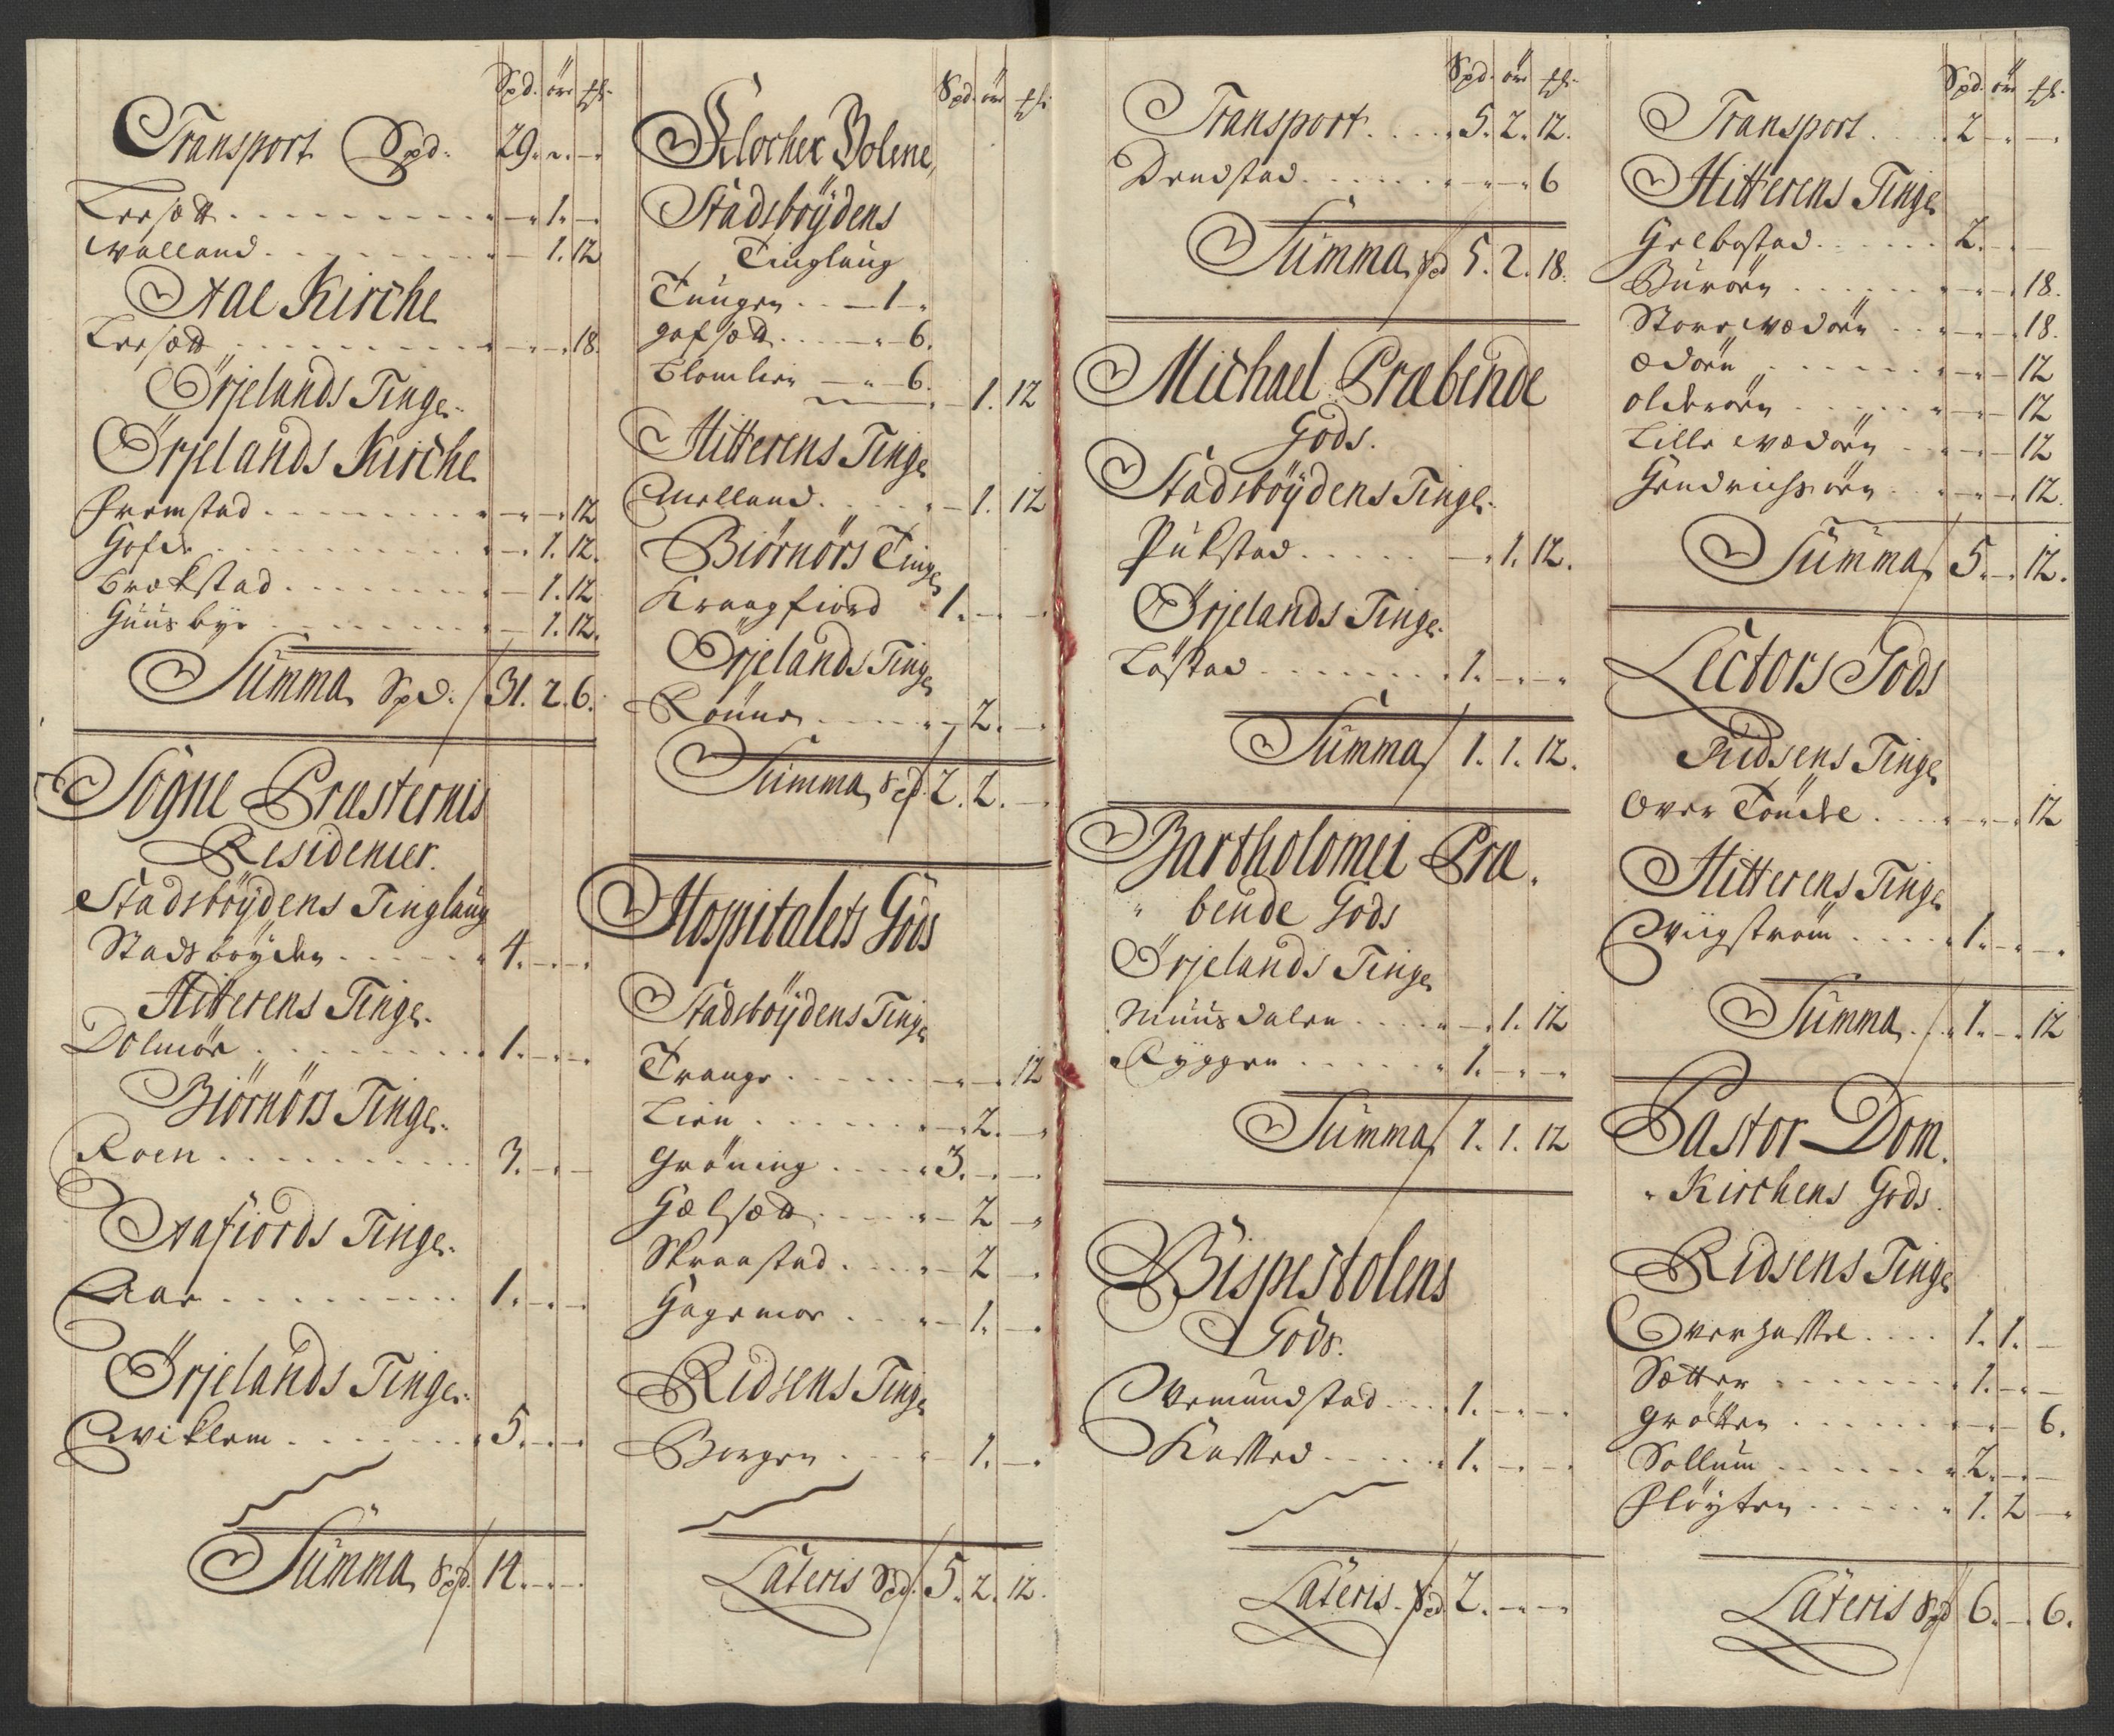 Spd. öre
Transport Spd. 29. " —
Lersætt . . . " — 1. —
walland . . . " — 1. 12
Aae Kirche
Lersætt . . . " — " 18.
Örjelands Tinge.
Örjelands Kirche
Fremstad . . . " — " 12
Hofde . . . " — 1. 12.
Brækstad . . . " — 1. 12
Huusbye . . . " — 1. 12.
Summa Spd. 31. 2. 6.
Sogne Præsternis
Residenier.
Stadsböydens Tinglaug
Stadsböyden . . . 4. — —
Hitterens Tinge.
Dolmör . . . 1. — —
Biörnörs Tinge.
Roen . . . 3. — —
Aafiords Tinge.
Aae . . . 1. — —
Örjelands Tinge.
Qviklem . . . 5. — —
Summa Spd. 14. — —
Spd. öre
Klocher Bolene,
Stadsböydens
Tinglaug
Tungen . . — 1 "
Hofsætt . . . — " 6.
Blomlien — " 6.
— 1. 12
Hitterens Tinge
Melland . . . " — 1. 12
Biörnörs Tinge
Kraagfiord 1. — —
Örjelands Tinge
Rönne . . . " 2. —
Summa Spd. 2. 2. —
Hospitalets Gods
Stadsböydens Tinge
Trange . . . — " 12
Lien . . . " — 2. —
Gröning . . . " 3. — —
Hælsætt . . . " — 2 —
Skraastad . . . " — 2 —
Hagemoe . . . " — 1. —
Ridsens Tinge
Borgen . . . " — 1. —
Lateris Spd. 5. 2. 12.
Spd. öre
Transport . . . 5. 2. 12.
Drudstad . . . " — " 6
Summa Spd 5. 2. 18.
Michael Præbende
Gods.
Stadsböydens Tinge.
Pukstad . . . — 1. 12.
Örjelands Tinge.
Löstad . . . 1. — —
Summa 1. 1. 12.
Bartholomei Præ.
" bende Gods
Örjelands Tinge
Muusdalen . . . " — 1. 12
Ryggen . . . " 1. — —
Summa 1. 1. 12
Bispestolens
Gods.
Ormundstad . . . 1. — —
Kasted . . . 1. — —
Lateris Spd. 2. — —
Spd. öre
Transport . . . 2 — —
Hitterens Tinge
Helbostad . . . 2. — —
Buröen . . . " — " 18.
Store wædöen . . " — " 18.
Ædöen . . . " — " 12
Olderöen . . . " — " 12
Lille wædöen . . " — " 12
Hendrichsöen . . " — " 12.
Summa 5. — 12.
Lectors Gods
Ridsens Tinge
Over Töndel . . . " — " 12
Hitterens Tinge
Qviigström . . . 1. — —
Summa . . 1. — 12
Pastor Dom.
" Kirchens Gods.
Ridsens Tinge
Overhassel . . . 1. 1. —
Sætter . . . 1. — —
Grötten . . . " — 6.
Sollum . . . 2. — —
Flöyten . . . 1. 2 —
Lateris Spd 6. — 6.